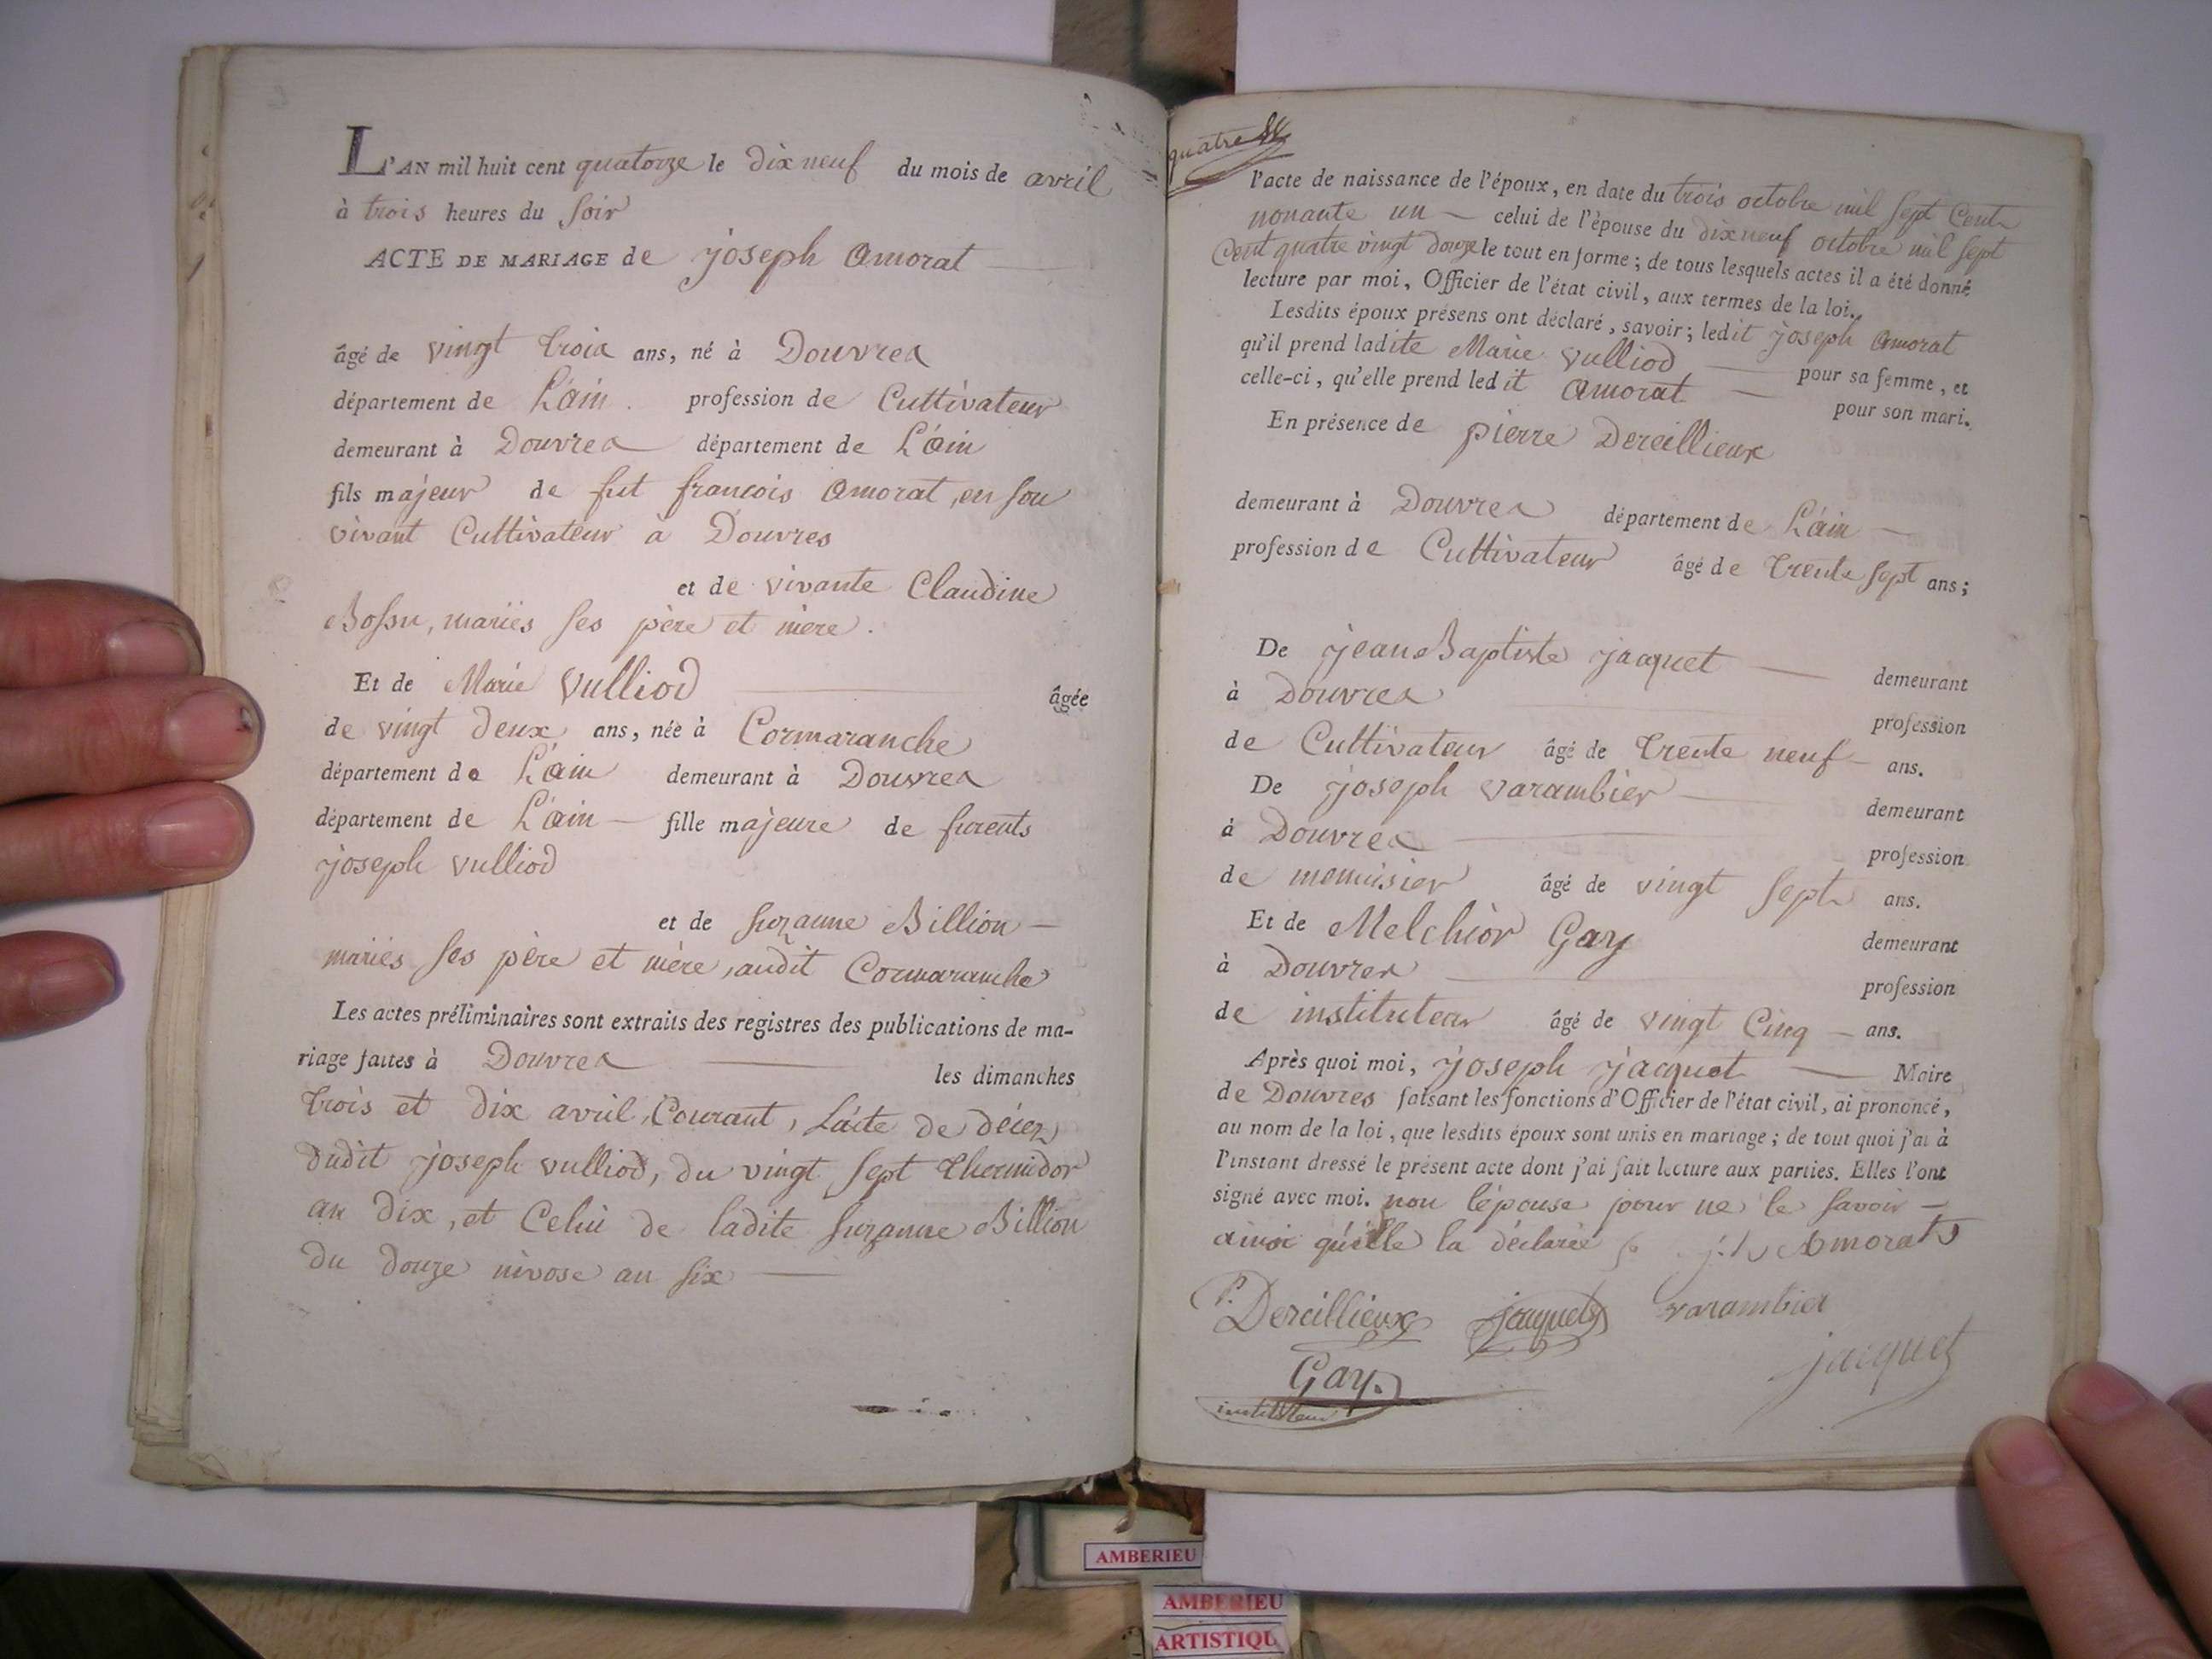 L'AN mil huit cent quatorze le dix neuf du mois de avril
à trois heures du soir
ACTE DE MARIAGE de joseph Amorat
âgé de vingt trois ans, né à Douvres
département de L'ain profession de Cultivateur
demeurant à Douvres département de L'ain
fils majeur de fut francois Amorat, en son
vivant Cultivateur a Douvres
et de vivante Claudine
Bossu, mariés ses père et mère.
Et de Marie Vulliod âgée
de vingt deux ans, née à Cormaranche
département de L'ain demeurant à Douvres
département de L'ain fille majeure de furents
joseph vulliod
et de suzanne Billion
mariés ses père et mère, audit Cormaranche
Les actes préliminaires sont extraits des registres des publications de ma-
riage faites à Douvres les dimanches
trois et dix avril Courant, L'acte de décez
dudit joseph vulliod, du vingt sept thermidor
an dix, et Celui de ladite suzanne Billion
du douze nivose an six
quatre
l'acte de naissance de l'époux, en date du trois octobre mil sept Cents
nonante un celui de l'épouse du dix neuf octobre mil sept
Cent quatre vingt douze le tout en forme ; de tous lesquels actes il a été donné
lecture par moi, Officier de l'état civil, aux termes de la loi.
Lesdits époux présens ont déclaré, savoir ; ledit joseph Amorat
qu'il prend ladite Marie Vulliod pour sa femme, et
celle-ci, qu'elle prend ledit Amorat pour son mari.
En présence de pierre Dereillieux
demeurant à Douvres département de L'ain
profession de Cultivateur âgé de trente sept ans ;
De jean Baptiste jacquet demeurant
à Douvres profession
de Cultivateur âgé de trente neuf ans.
De joseph varambier demeurant
à Douvres profession
de menuisier âgé de vingt sept ans.
Et de Melchior Gay demeurant
à Douvres profession
de instituteur âgé de vingt Cinq ans.
Après quoi moi, joseph jacquet Maire
de Douvres faisant les fonctions d'Officier de l'état civil, ai prononcé,
au nom de la loi, que lesdits époux sont unis en mariage ; de tout quoi j'ai à
l'instant dressé le présent acte dont j'ai fait lecture aux parties. Elles l'ont
signé avec moi. non l'épouse pour ne le savoir
ainsi qu'elle la déclarée Amorat
P. Dereillieux jacquet varambier
Gay. jacquet
instituteur
AMBERIEU
AMBERIEU
ARTISTIQU